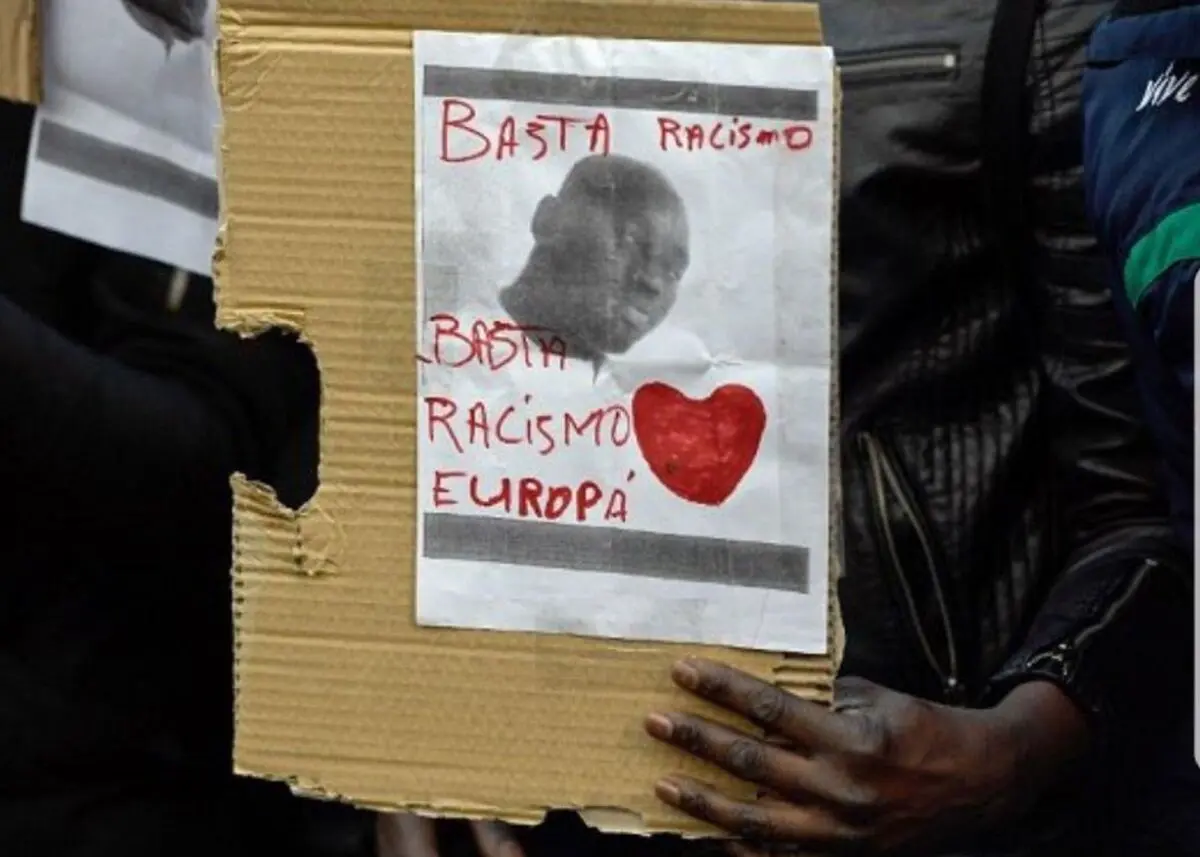 BASTA RACISMO
BASTA
RACISMO
EUROPÁ
VIVE